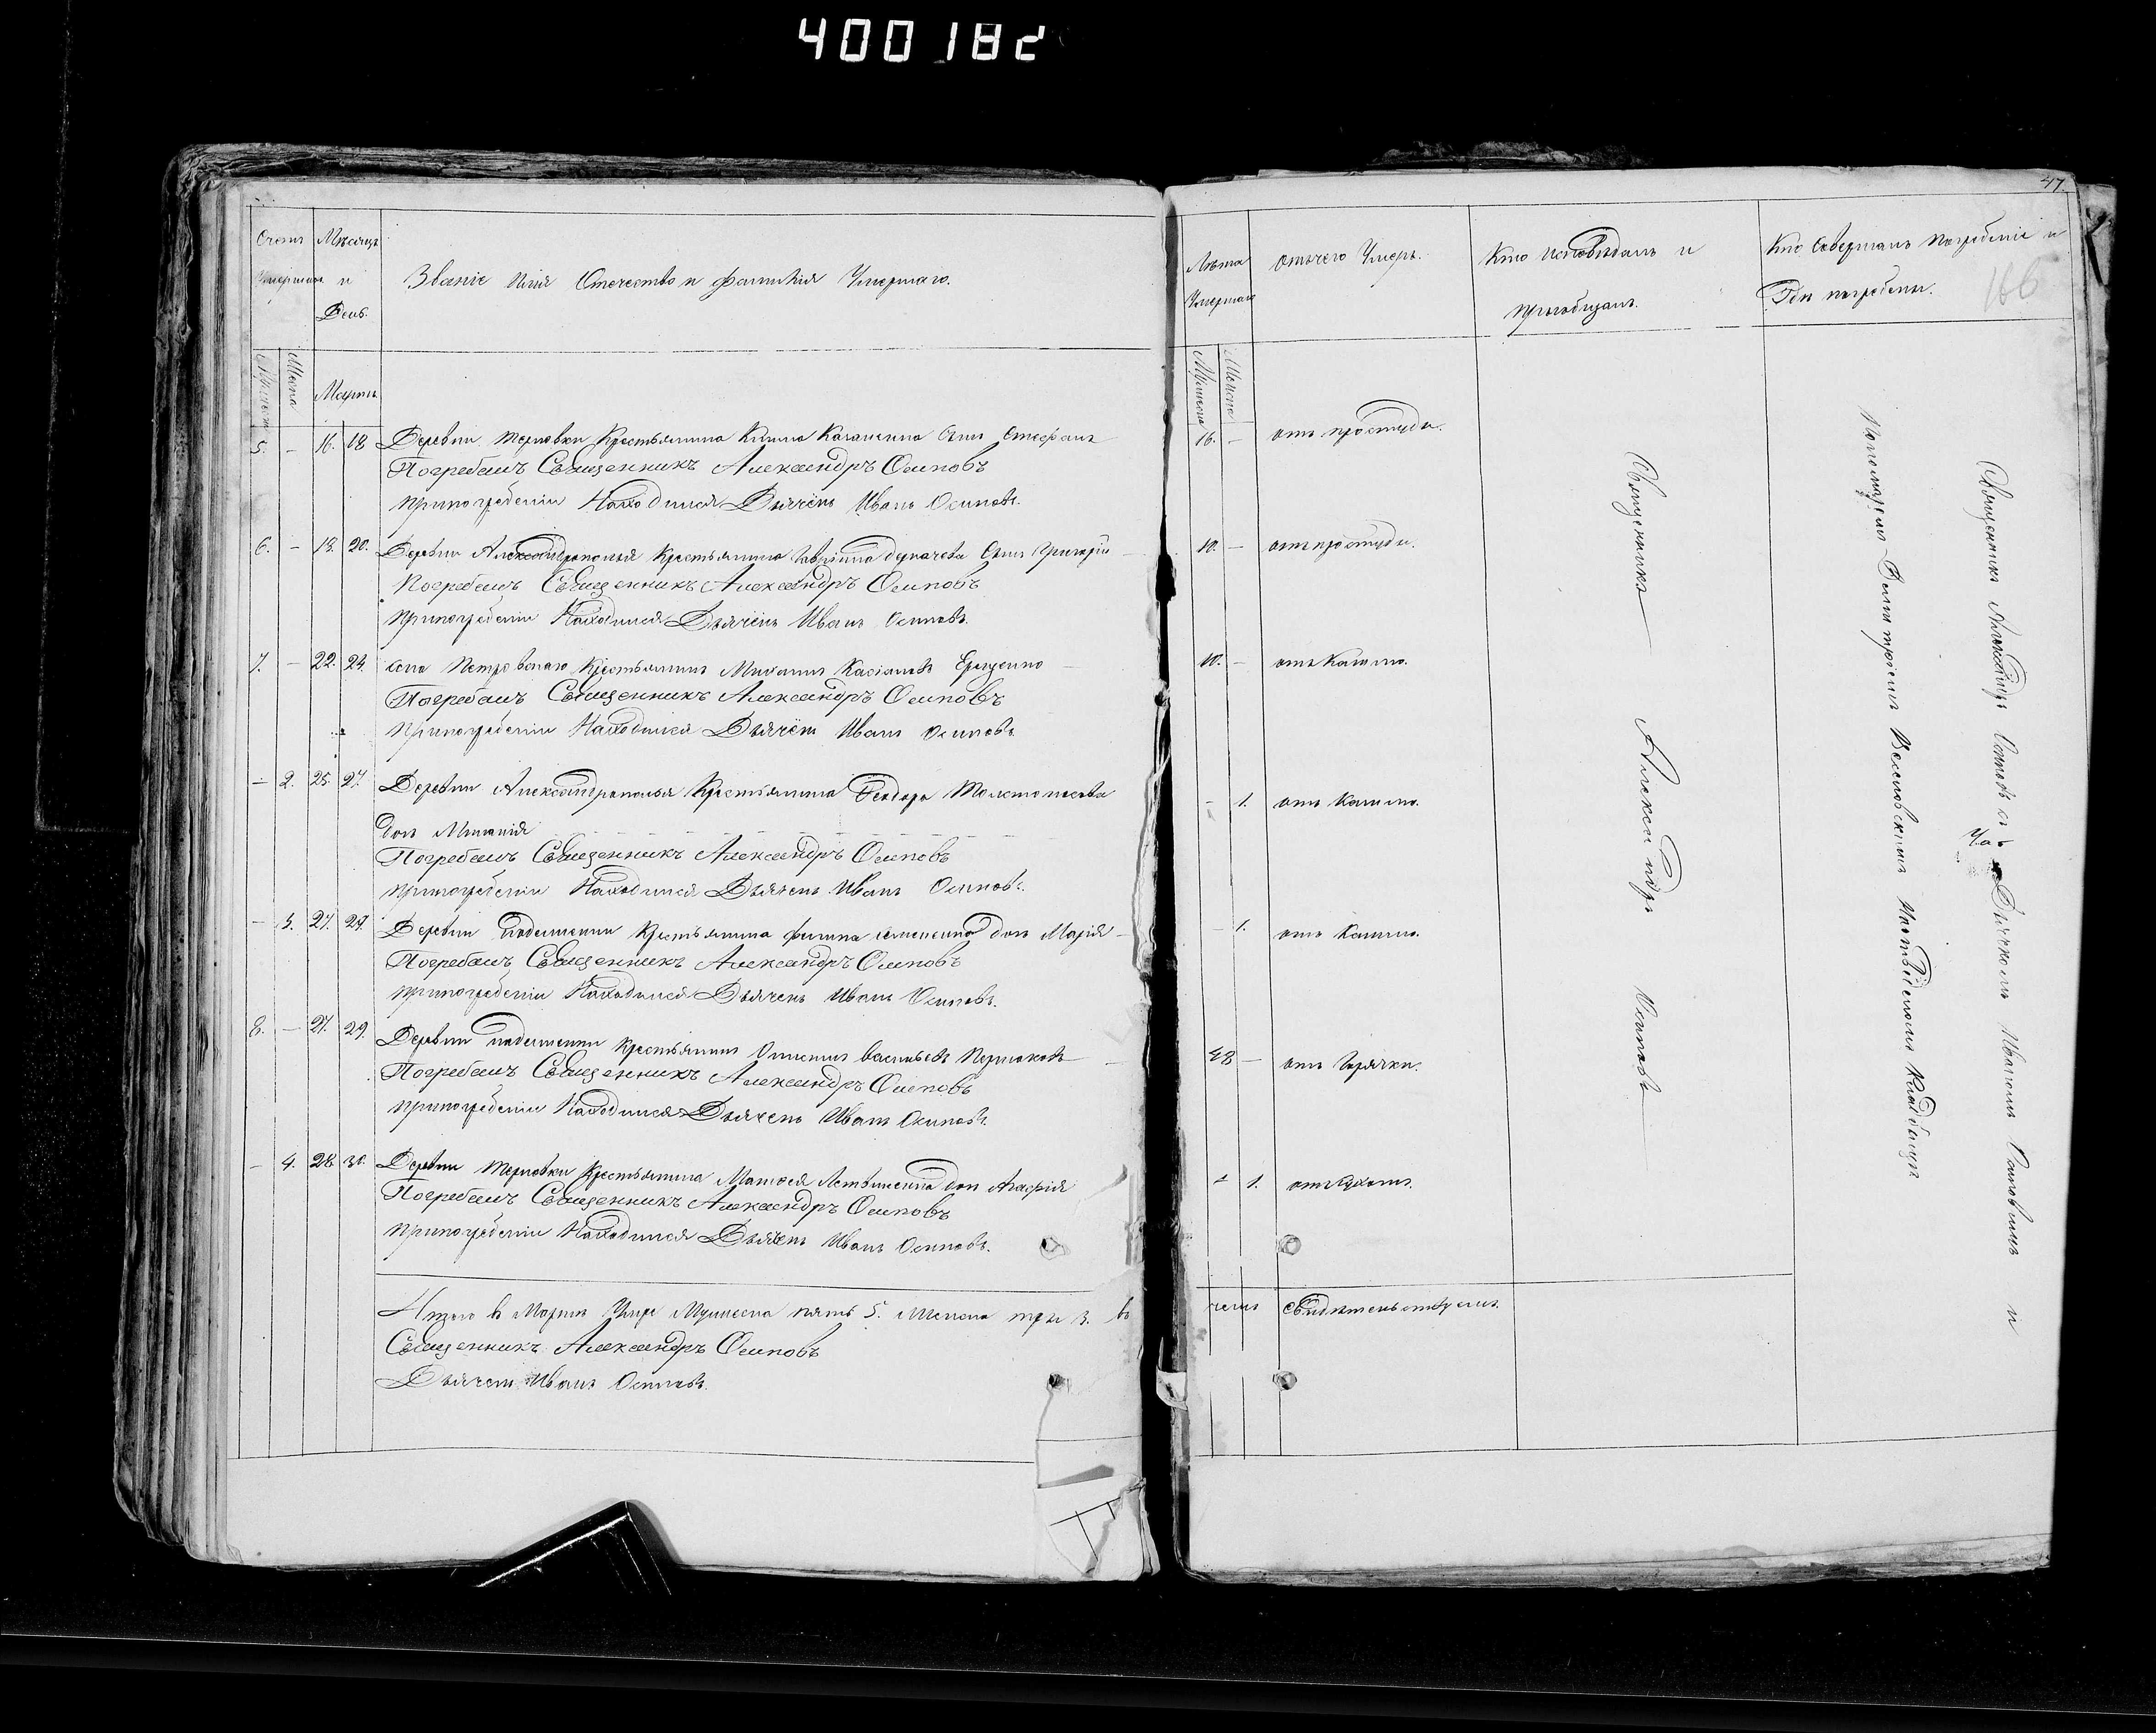 400182
Счетъ
Умершихъ
Мѣсяцъ
и
День.
Званіе Имя Отечество и фамилія Умершаго.
Мужеска
Женска
Мартъ
5. — 16. 18 Деревни Терновки Крестьянина сынъ Стефанъ
Погребалъ Священникъ Александръ Осиповъ
При погребеніи Находился Дьячекъ Иванъ Осиповъ.
6. — 18. 20. Деревни Александрополья Крестьянина Гавріила сынъ Григорій
Погребалъ Священникъ Александръ Осиповъ
При погребеніи Находился Дьячекъ Иванъ Осиповъ.
7. — 22. 24. села Петровскаго Крестьянинъ Михаилъ Касіановъ
Погребалъ Священникъ Александръ Осиповъ
При погребеніи Находился Дьячекъ Иванъ Осиповъ
— 2. 25. 27. Деревни Александрополья Крестьянина Феодора
дочь
Погребалъ Священникъ Александръ Осиповъ
При погребеніи Находился Дьячекъ Иванъ Осиповъ.
— 3. 27. 29. Деревни Крестьянина дочь Марія
Погребалъ Священникъ Александръ Осиповъ
При погребеніи Находился Дьячекъ Иванъ Осиповъ.
8. — 27. 29. Деревни Крестьянинъ Васильевъ
Погребалъ Священникъ Александръ Осиповъ
При погребеніи Находился Дьячекъ Иванъ Осиповъ.
— 4. 28. 30. Деревни Терновки Крестьянина Матфея Литвиненка дочь Агафія
Погребалъ Священникъ Александръ Осиповъ
При погребеніи Находился Дьячекъ Иванъ Осиповъ.
Итого въ Мартѣ Умре Мужеска пять 5. Женска три 3. въ
Священникъ Александръ Осиповъ
Дьячекъ Иванъ Осиповъ.
47.
166
Лѣта
Умершаго
отъ чего Умеръ.
Кто исповѣдалъ и
Пріобщалъ.
Кто Совершалъ погребеніе и
Гдѣ погребены.
Мужеска
Женска
16. — отъ простуды.
10. — отъ простуды.
10. — отъ Кашлю.
— 1. отъ Кашлю.
— 1. отъ Кашлю.
48 — отъ Горячки.
— 1.
чемъ свидѣтельствуемъ.
Священникъ Александръ Осиповъ
Священникъ Александръ Осиповъ съ
Дьячкомъ Иваномъ Осиповымъ и
Пономаремъ Димитріемъ Веселовскимъ на Кладбищѣ